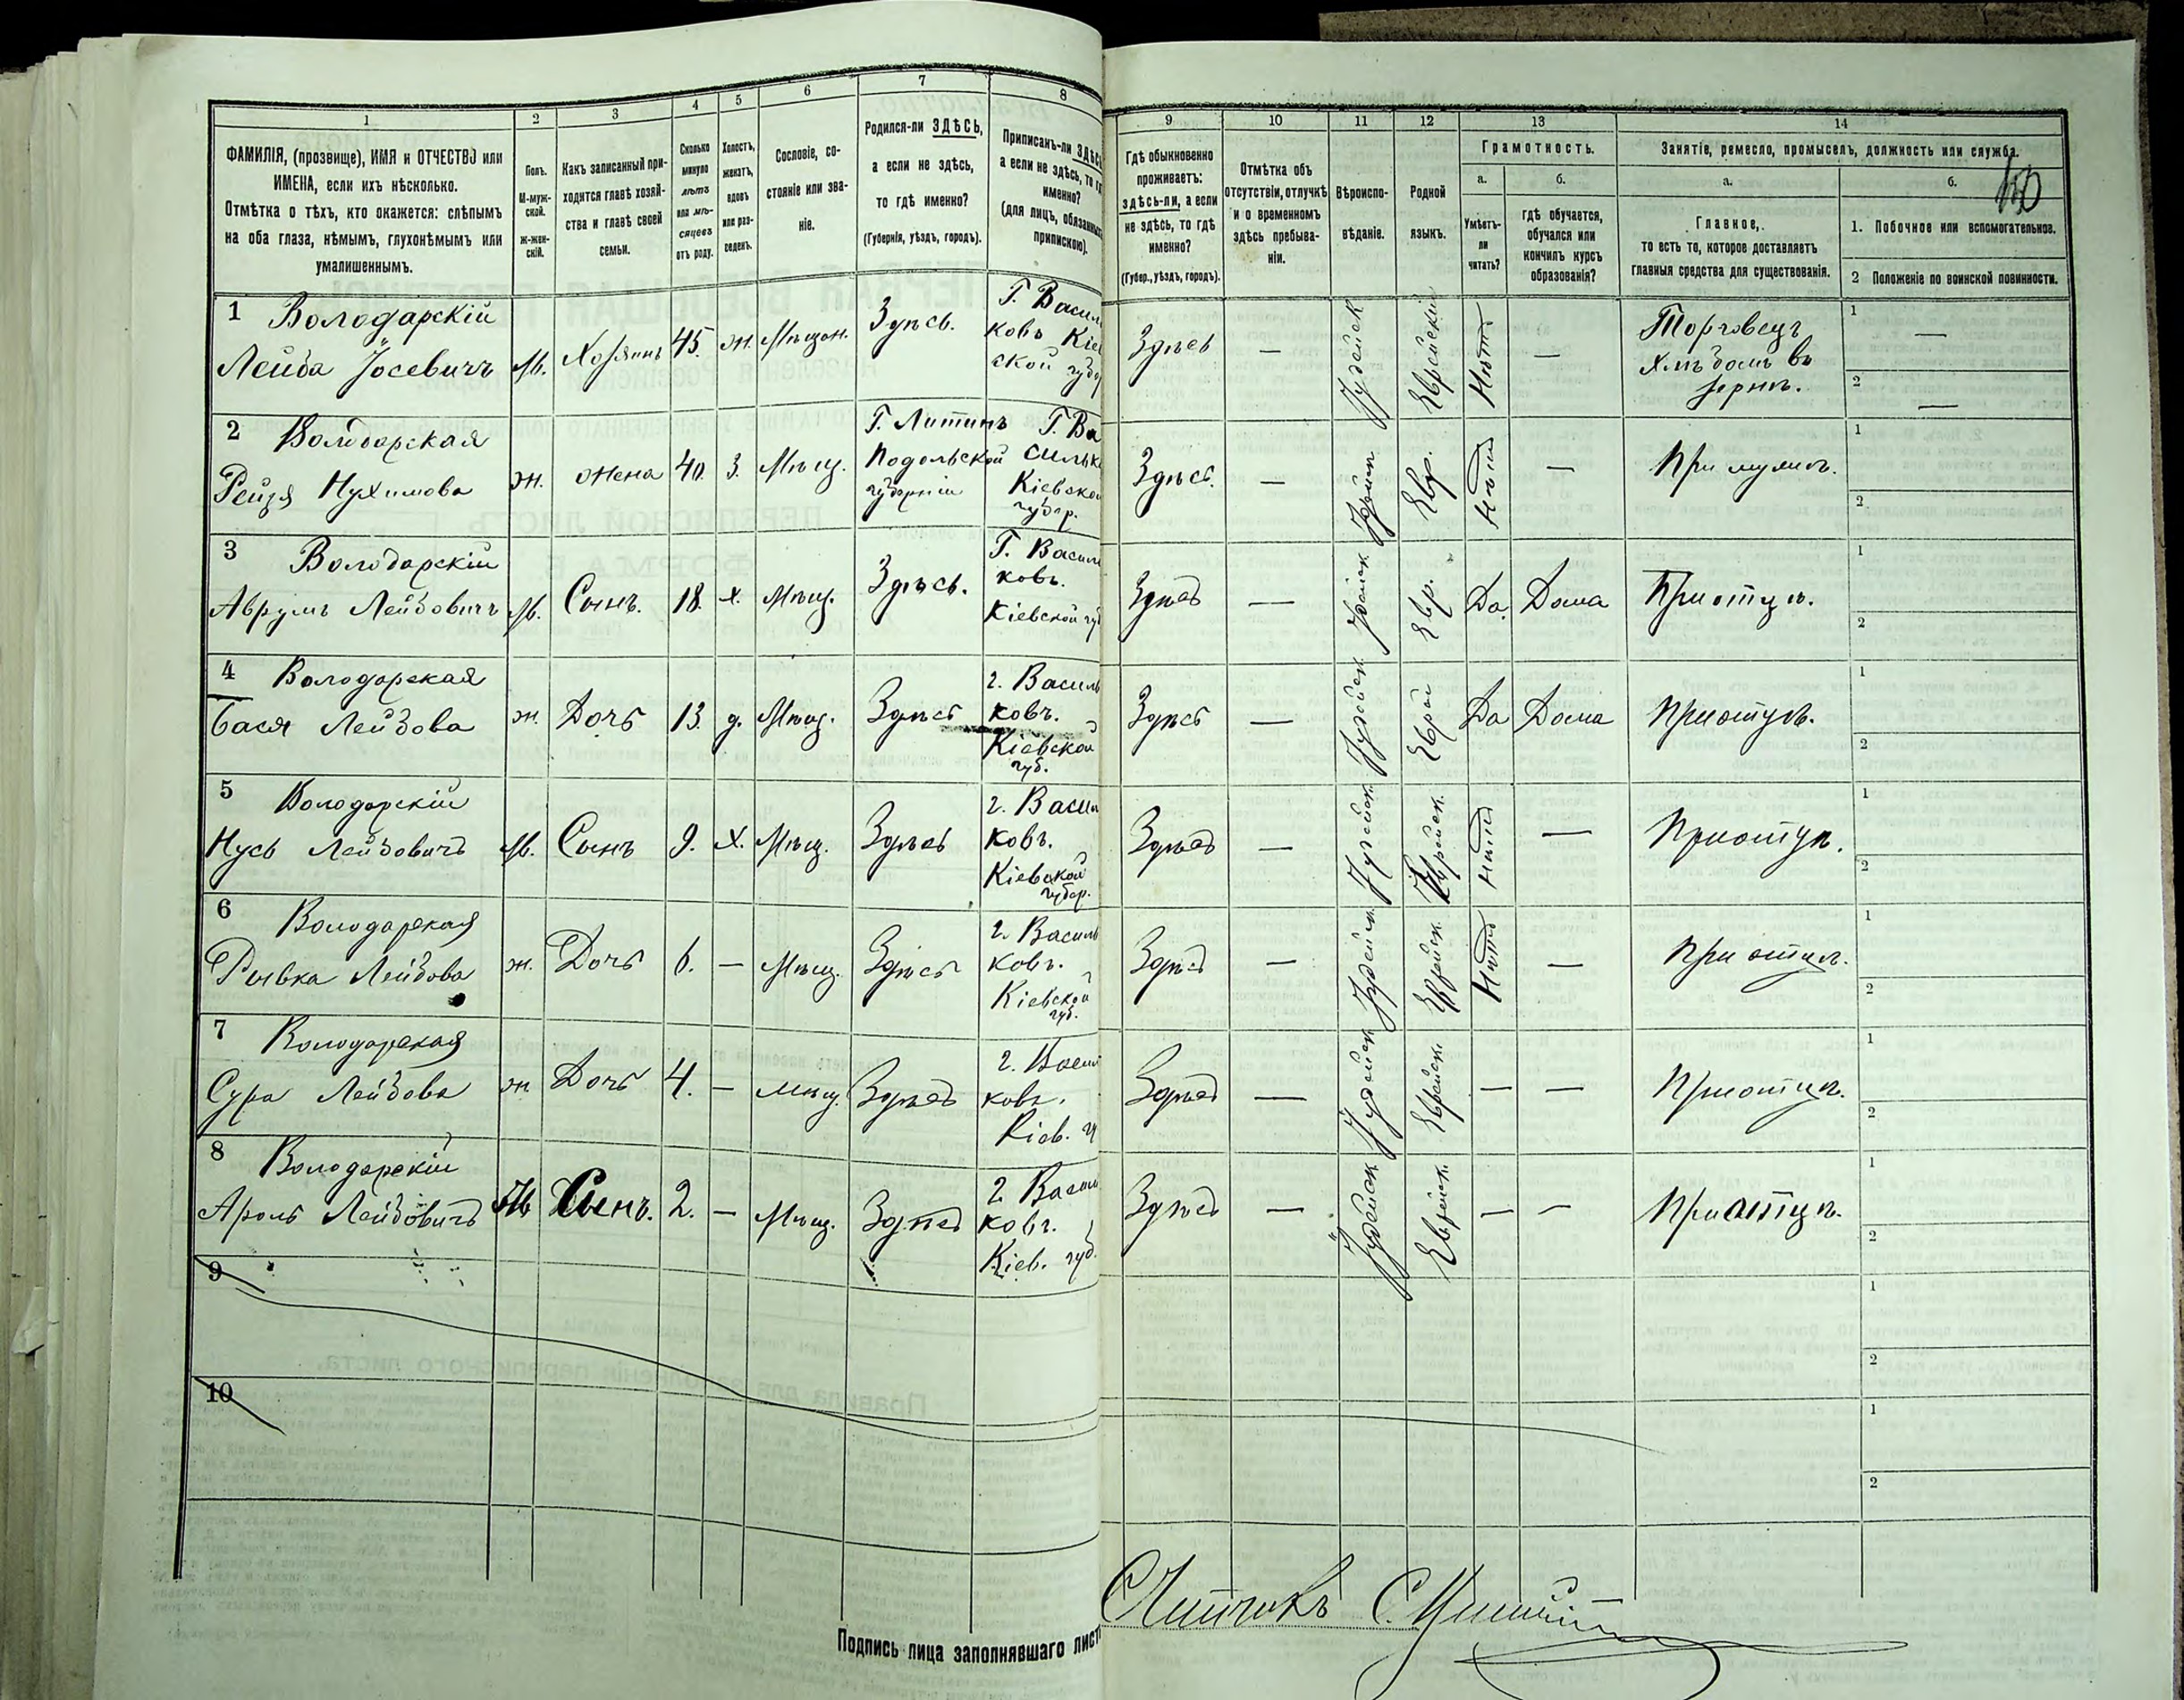 1
ФАМИЛІЯ, (прозвище), ИМЯ и ОТЧЕСТВО или
ИМЕНА, если ихъ нѣсколько.
Отмѣтка о тѣхъ, кто окажется: слѣпымъ
на оба глаза, нѣмымъ, глухонѣмымъ или
умалишеннымъ.
2
Полъ.
М-муж-
ской.
ж-жен-
скій.
3
Какъ записанный при-
ходится главѣ хозяй-
ства и главѣ своей
семьи.
4
Сколько
минуло
лѣтъ
или мѣ-
сяцевъ
отъ роду.
5
Холостъ,
женатъ,
вдовъ
или раз-
веденъ.
6
Сословіе, со-
стояніе или зва-
ніе.
7
Родился-ли ЗДѢСЬ,
а если не здѣсь,
то гдѣ именно?
(Губернія, уѣздъ, городъ).
8
Приписанъ-ли ЗДѢСЬ
а если не здѣсь, то гд
именно?
(для лицъ, обязанныхъ
припискою).
9
Гдѣ обыкновенно
проживаетъ:
здѣсь-ли, а если
не здѣсь, то гдѣ
именно?
(Губер., уѣздъ, городъ).
10
Отмѣтка объ
отсутствіи, отлучкѣ
и о временномъ
здѣсь пребыва-
ніи.
11
Вѣроиспо-
вѣданіе.
12
Родной
языкъ.
13
Грамотность.
а.
Умѣетъ-
ли
читать?
б.
гдѣ обучается,
обучался или
кончилъ курсъ
образованія?
14
Занятіе, ремесло, промыселъ, должность или служба.
а.
Главное,
то есть то, которое доставляетъ
главныя средства для существованія.
б.
1. Побочное или вспомогательное.
2 Положеніе по воинской повинности.
1 Володарскій
Лейба Іосевичъ
М.
Хозяинъ
45.
ж.
Мѣщан.
Здѣсь.
Г. Василь
ковъ Кіев
ской губ
Здѣсь
—
Іудейск
Еврейскій
Нѣтъ
—
Торговецъ
Хлѣбомъ въ
зернѣ.
1 —
2 —
2 Володарская
Рейзя Нухимова
ж.
жена
40.
З.
Мѣщ.
Г. Литинъ
Подольской
губерніи
Г. Ва
сильк
Кіевской
губер.
Здѣсь.
—
Іудейск
Евр.
Нѣтъ
—
При мужѣ.
1
2
3 Володарскій
Аврумъ Лейбовичъ
М.
Сынъ.
18.
х.
Мѣщ.
Здѣсь.
Г. Василь
ковъ.
Кіевской гу
Здѣсь
—
Іудейск
Евр.
Да.
Дома
При отцѣ.
1
2
4 Володарская
Бася Лейбова
ж.
Дочь
13.
д.
Мѣщ.
Здѣсь
г. Василь
ковъ.
Кіевской
губ.
Здѣсь
—
Іудейск.
Еврей
Да
Дома
При отцѣ.
1
2
5 Володарскій
Нусь Лейбовичъ
М.
Сынъ
9.
Х.
Мѣщ.
Здѣсь
г. Васил
ковъ.
Кіевской
губер.
Здѣсь
—
Іудейск.
Еврейск.
Нѣтъ
—
При отцѣ.
1
2
6 Володарская
Рывка Лейбова
ж.
Дочь
6.
—
Мѣщ.
Здѣсь
г. Василь
ковъ.
Кіевской
губ.
Здѣсь
—
Іудейск.
Еврейск.
Нѣтъ
—
При отцѣ.
1
2
7 Володарская
Сура Лейбова
ж
Дочь
4.
—
мѣщ.
Здѣсь
г. Васил
ковъ.
Кіев. г
Здѣсь
—
Іудейск
Еврейск.
—
—
При отцѣ.
1
2
8 Володарскій
Аронъ Лейбовичъ
М
Сынъ.
2.
—
Мѣщ.
Здѣсь
г. Васил
ковъ.
Кіев. губ.
Здѣсь
—
Іудейск
Еврейск.
—
—
При отцѣ.
1
2
9
1
2
10
1
2
Подпись лица заполнявшаго лист